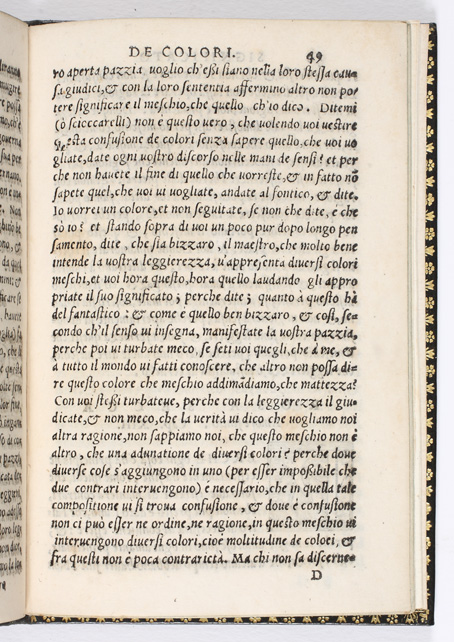 DE COLORI. 49
ro aperta pazzia, voglio ch'eßi siano nella loro stessa cau-
sa giudici, & con la loro sententia affermino altro non po-
tere significare il meschio, che quello, ch'io dico. Ditemi
(ò sciocсarelli) non è questo vero, che volendo voi vestire
questa confusione de colori senza sapere quello, che voi vo
gliate, date ogni vostro discorso nelle mani de sensi? et per
che non havete il fine di quello che vorreste, & in fatto nō
sapete quel, che voi vi vogliate, andate al fontico, & dite.
Io vorrei un colore, et non seguitate, se non che dite, è che
sò io? et stando sopra di voi un poco pur dopo longo pen
samento, dite, che sia bizzaro, il maestro, che molto bene
intende la vostra leggierezza, v'appresenta diversi colori
meschi, et voi hora questo, hora quello laudando gli appro
priate il suo significato; perche dite; quanto à questo hà
del fantastico: & come è quello ben bizzaro, & così, se-
condo ch'il senso vi insegna, manifestate la vostra pazzia,
perche poi vi turbate meco, se seti voi quegli, che à me, &
à tutto il mondo vi fatti conoscere, che altro non possa di-
re questo colore che meschio addimādiamo, che mattezza?
Con voi steßi turbateve, perche con la leggierezza il giu-
dicate, & non meco, che la verità vi dico che vogliamo noi
altra ragione, non sappiamo noi, che questo meschio non è
altro, che una adunatione de diversi colori? perche dove
diverse cose s'aggiungono in uno (per esser impoßibile che
due contrari intervengono) è necessario, che in quella tale
compositione vi si trova confusione, & dove è confusione
non ci può esser ne ordine, ne ragione, in questo meschio vi
intervengono diversi colori, cioè moltitudine de coloei, &
fra questi non è poca contrarietà. Ma chi non sa discerne-
D